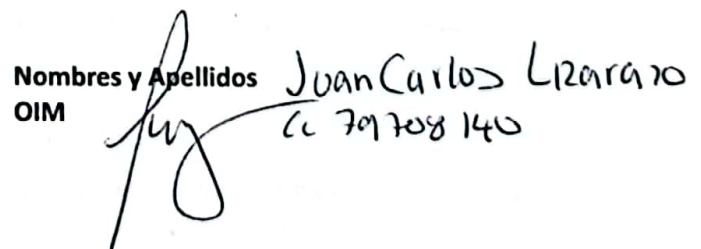 Nombres y Apellidos Juan Carlos Lizarazo
OIM Cc 79708140